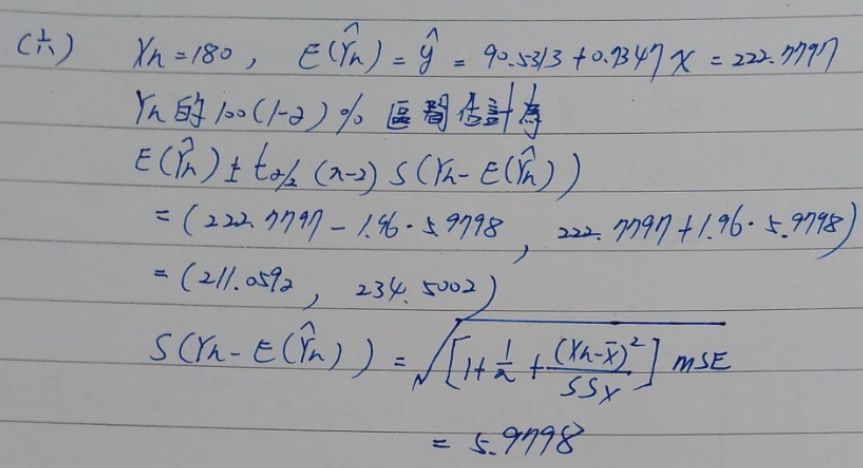 (六) Xh=180, E(Ŷh)=ŷ=90.5313+0.7347X=222.7797
Yh的100(1-α)% 區間估計為
E(Ŷh)±tα/2 (n-2) S(Yh-E(Ŷh))
=(222.7797-1.96·5.9798, 222.7797+1.96·5.9798)
=(211.0592, 234.5002)
S(Yh-E(Ŷh))=√[1+1/n+(Xh-X̄)²/SSX] MSE
=5.9798